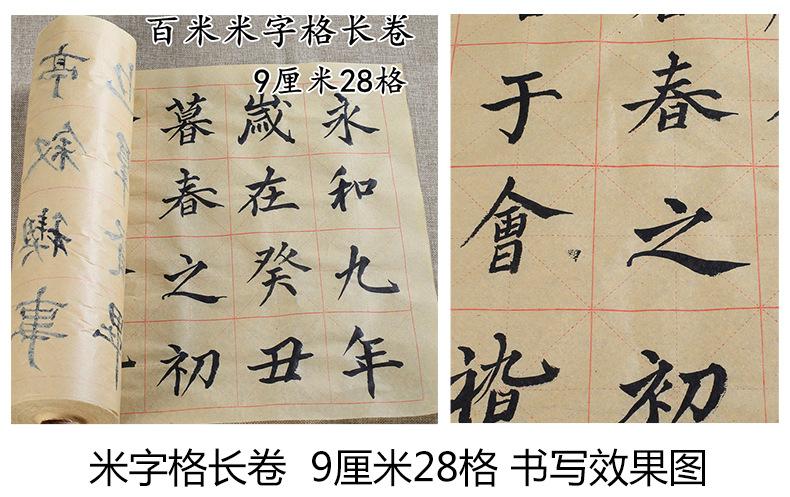 百米米字格长卷
9厘米28格
永和九年
歲在癸丑
暮春之初
亭叙禊事
春之初
于會稽
米字格长卷 9厘米28格 书写效果图